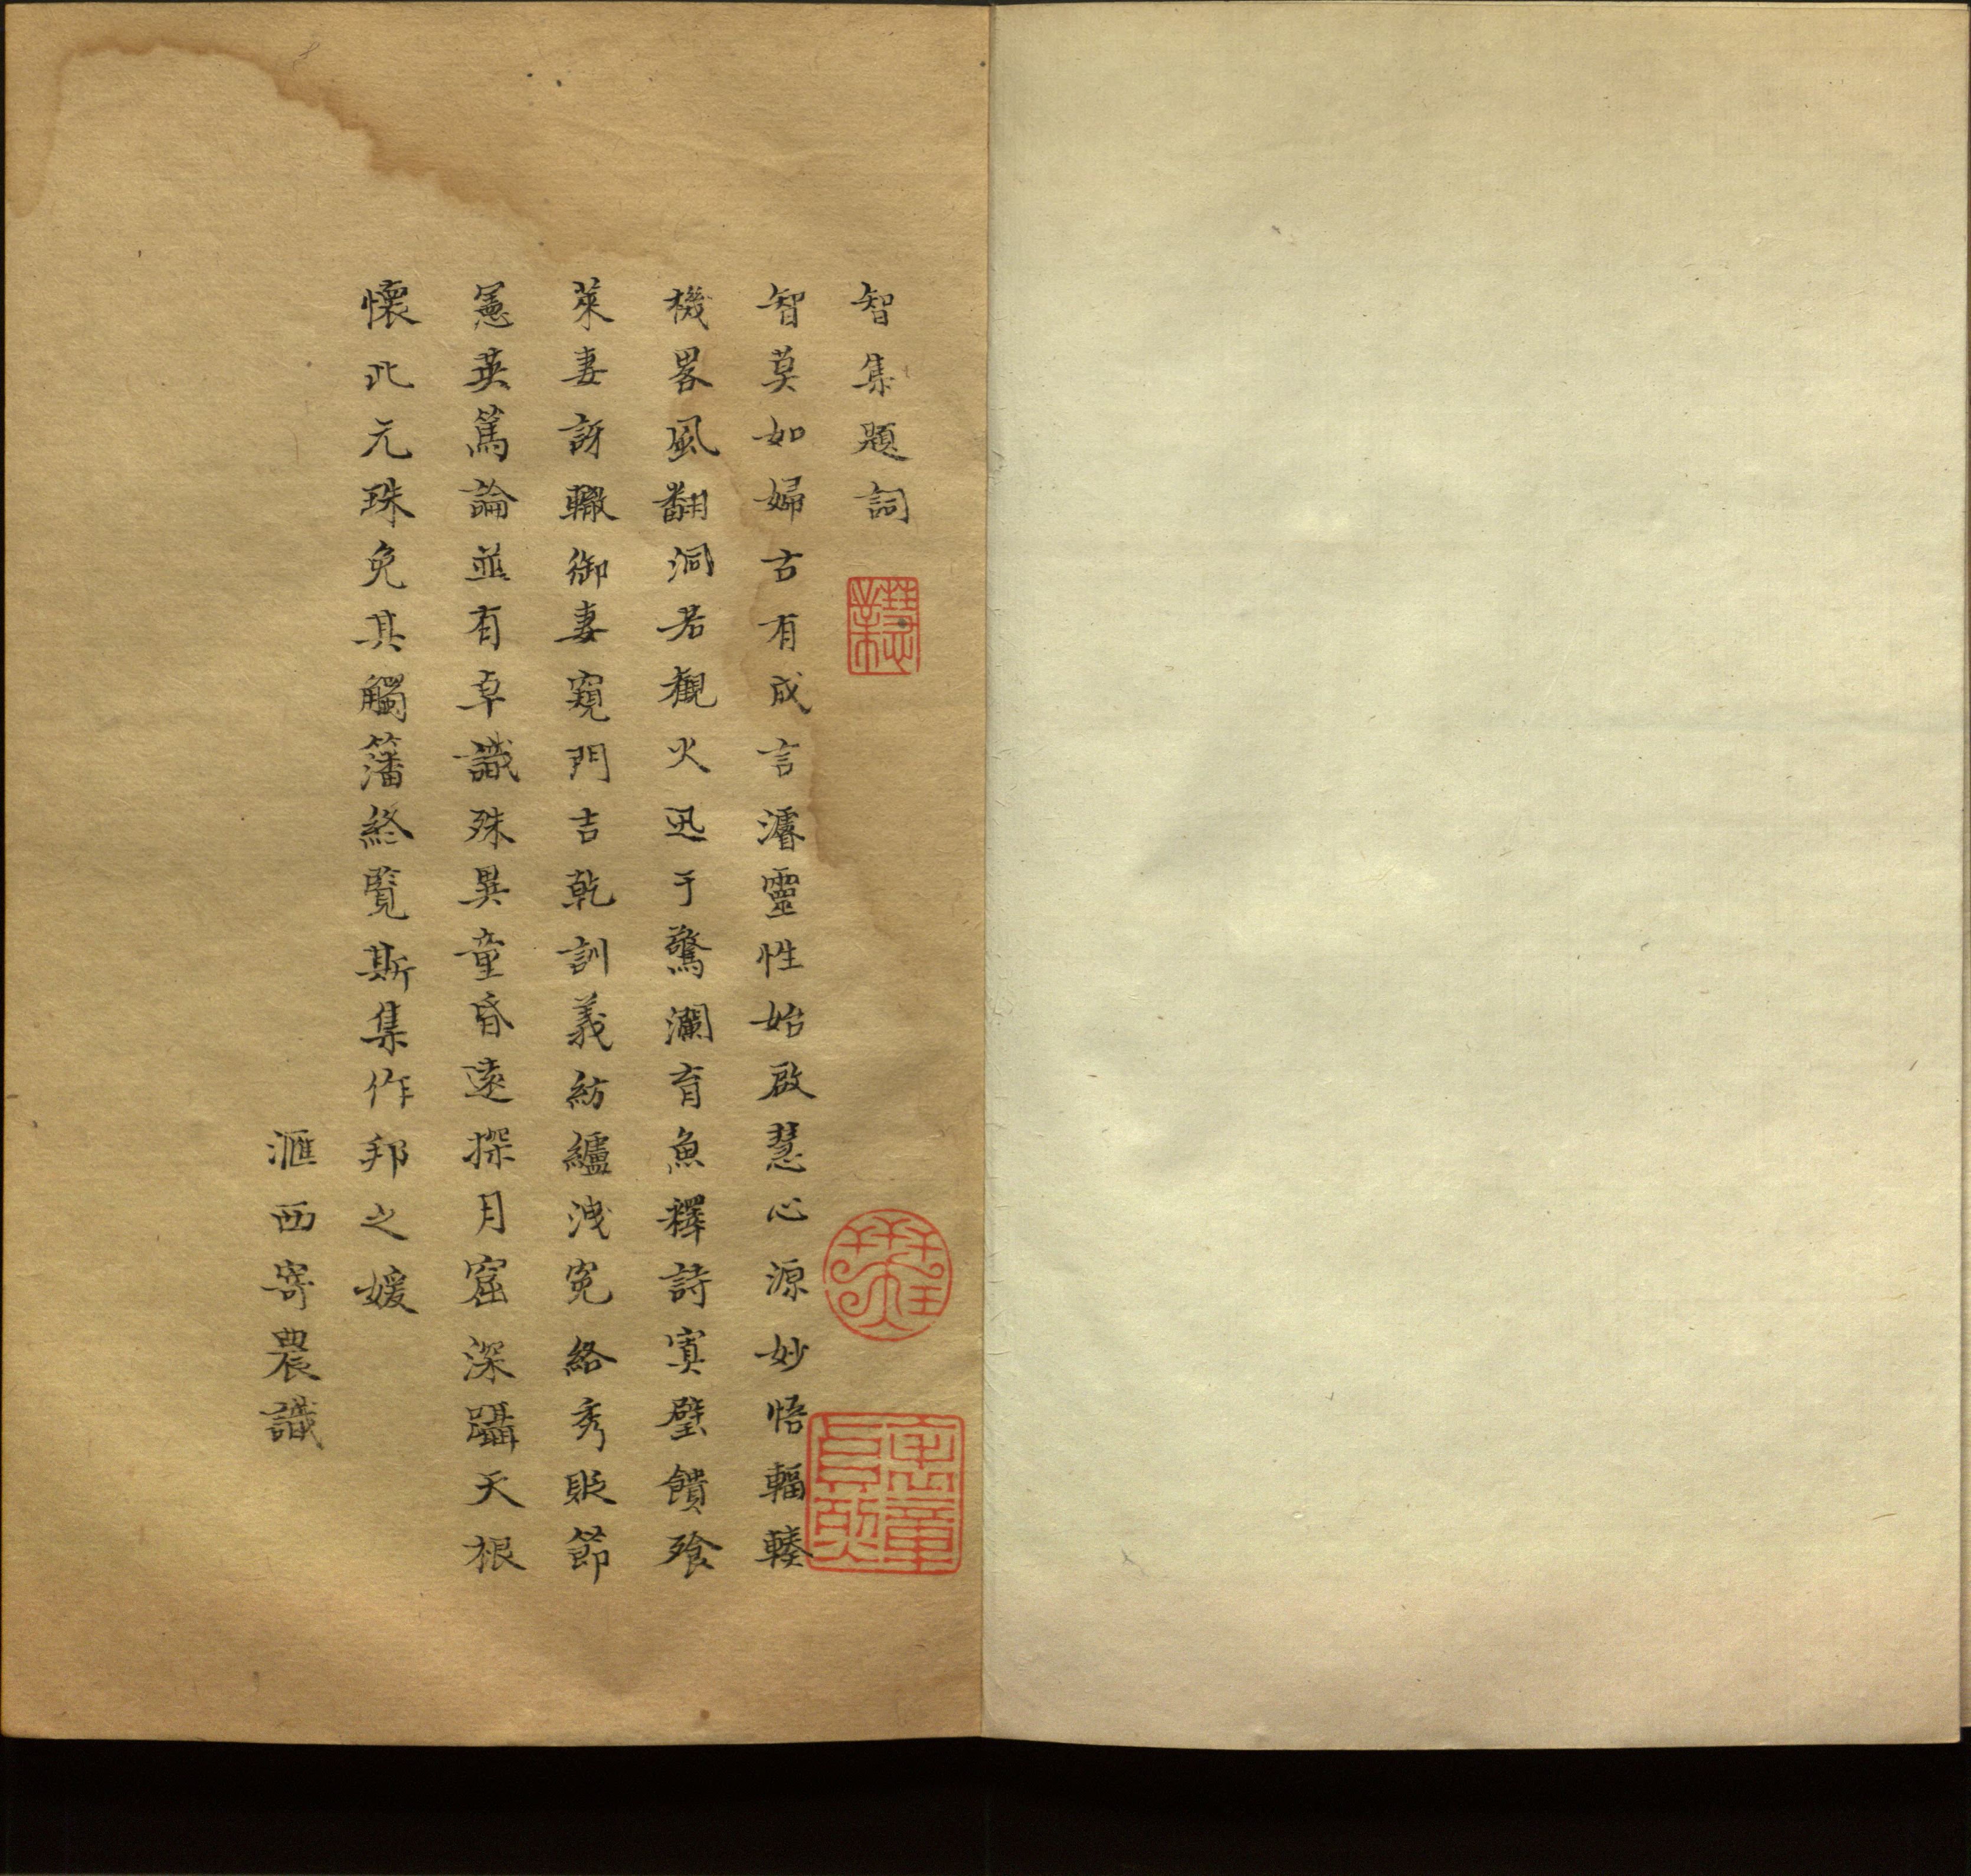 智集題詞
智莫如婦古有成言濬靈性始啟慧心源妙悟輻輳
機畧風翻洞若觀火迅于驚瀾育魚釋詩寘璧饋飱
萊妻訝轍御妻窺門吉乾訓義紡纑洩寃絡秀貶節
憲英篤論並有卓識殊異童昏遠探月窟深躡天根
懷此元珠免其觸籓終覽斯集作邦之媛
滙西寄農識